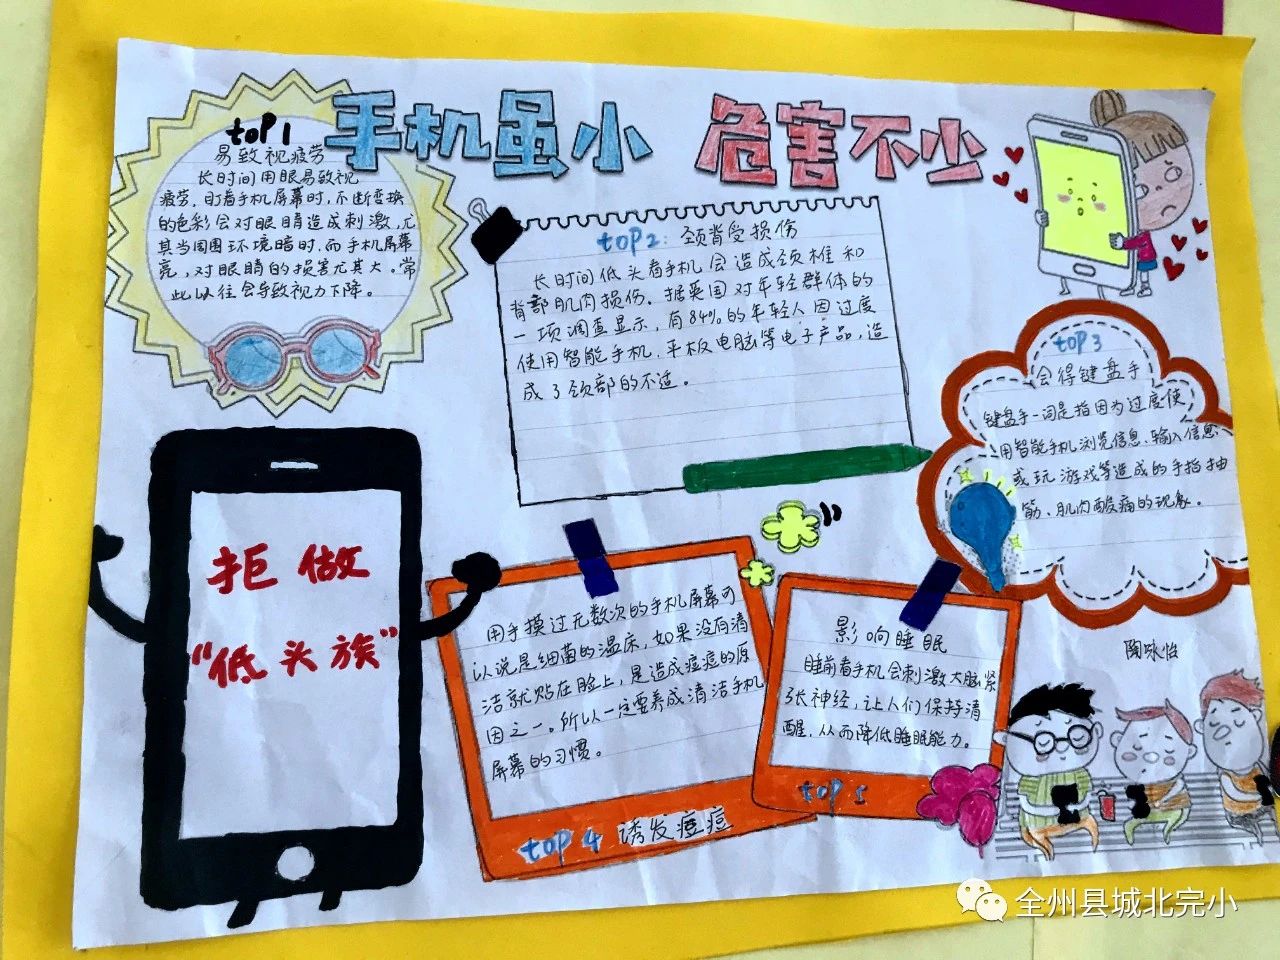 手机虽小 危害不少
top1
易致视疲劳
长时间用眼易致视
疲劳,盯着手机屏幕时,不断变换
的色彩会对眼睛造成刺激,尤
其当周围环境暗时,而手机屏幕
亮,对眼睛的损害尤其大。常
此以往会导致视力下降。
top2:颈背受损伤
长时间低头看手机会造成颈椎和
背部肌肉损伤。据英国对年轻群体的
一项调查显示,有84%的年轻人因过度
使用智能手机、平板电脑等电子产品,造
成了颈部的不适。
top3
会得键盘手
键盘手一词是指因为过度使
用智能手机浏览信息、输入信息、
或玩游戏等造成的手指抽
筋、肌肉酸痛的现象。
拒做
“低头族”
用手摸过无数次的手机屏幕可
以说是细菌的温床,如果没有清
洁就贴在脸上,是造成痘痘的原
因之一。所以一定要养成清洁手机
屏幕的习惯。
top 4 诱发痘痘
影响睡眠
睡前看手机会刺激大脑紧
张神经,让人们保持清
醒,从而降低睡眠能力。
top 5
陶咏怡
全州县城北完小